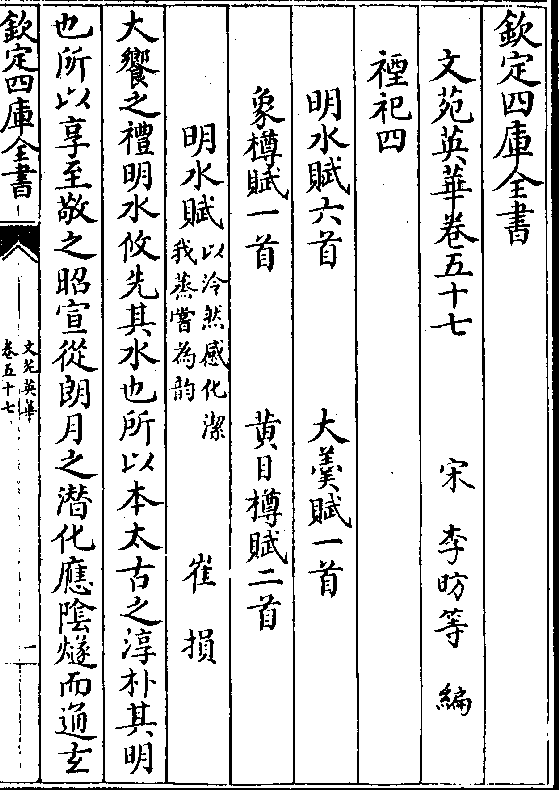 欽定四庫全書
文苑英華卷五十七　宋　李昉等　編
禋祀四
明水賦六首　大羹賦一首
象樽賦一首　黃目樽賦二首
明水賦以泠然感化潔我蒸嘗為韵　崔　損
大饗之禮明水攸先其水也所以本太古之淳朴其明
也所以享至敬之昭宣從朗月之潛化應陰燧而通玄
欽定四庫全書
文苑英華
卷五十七
一